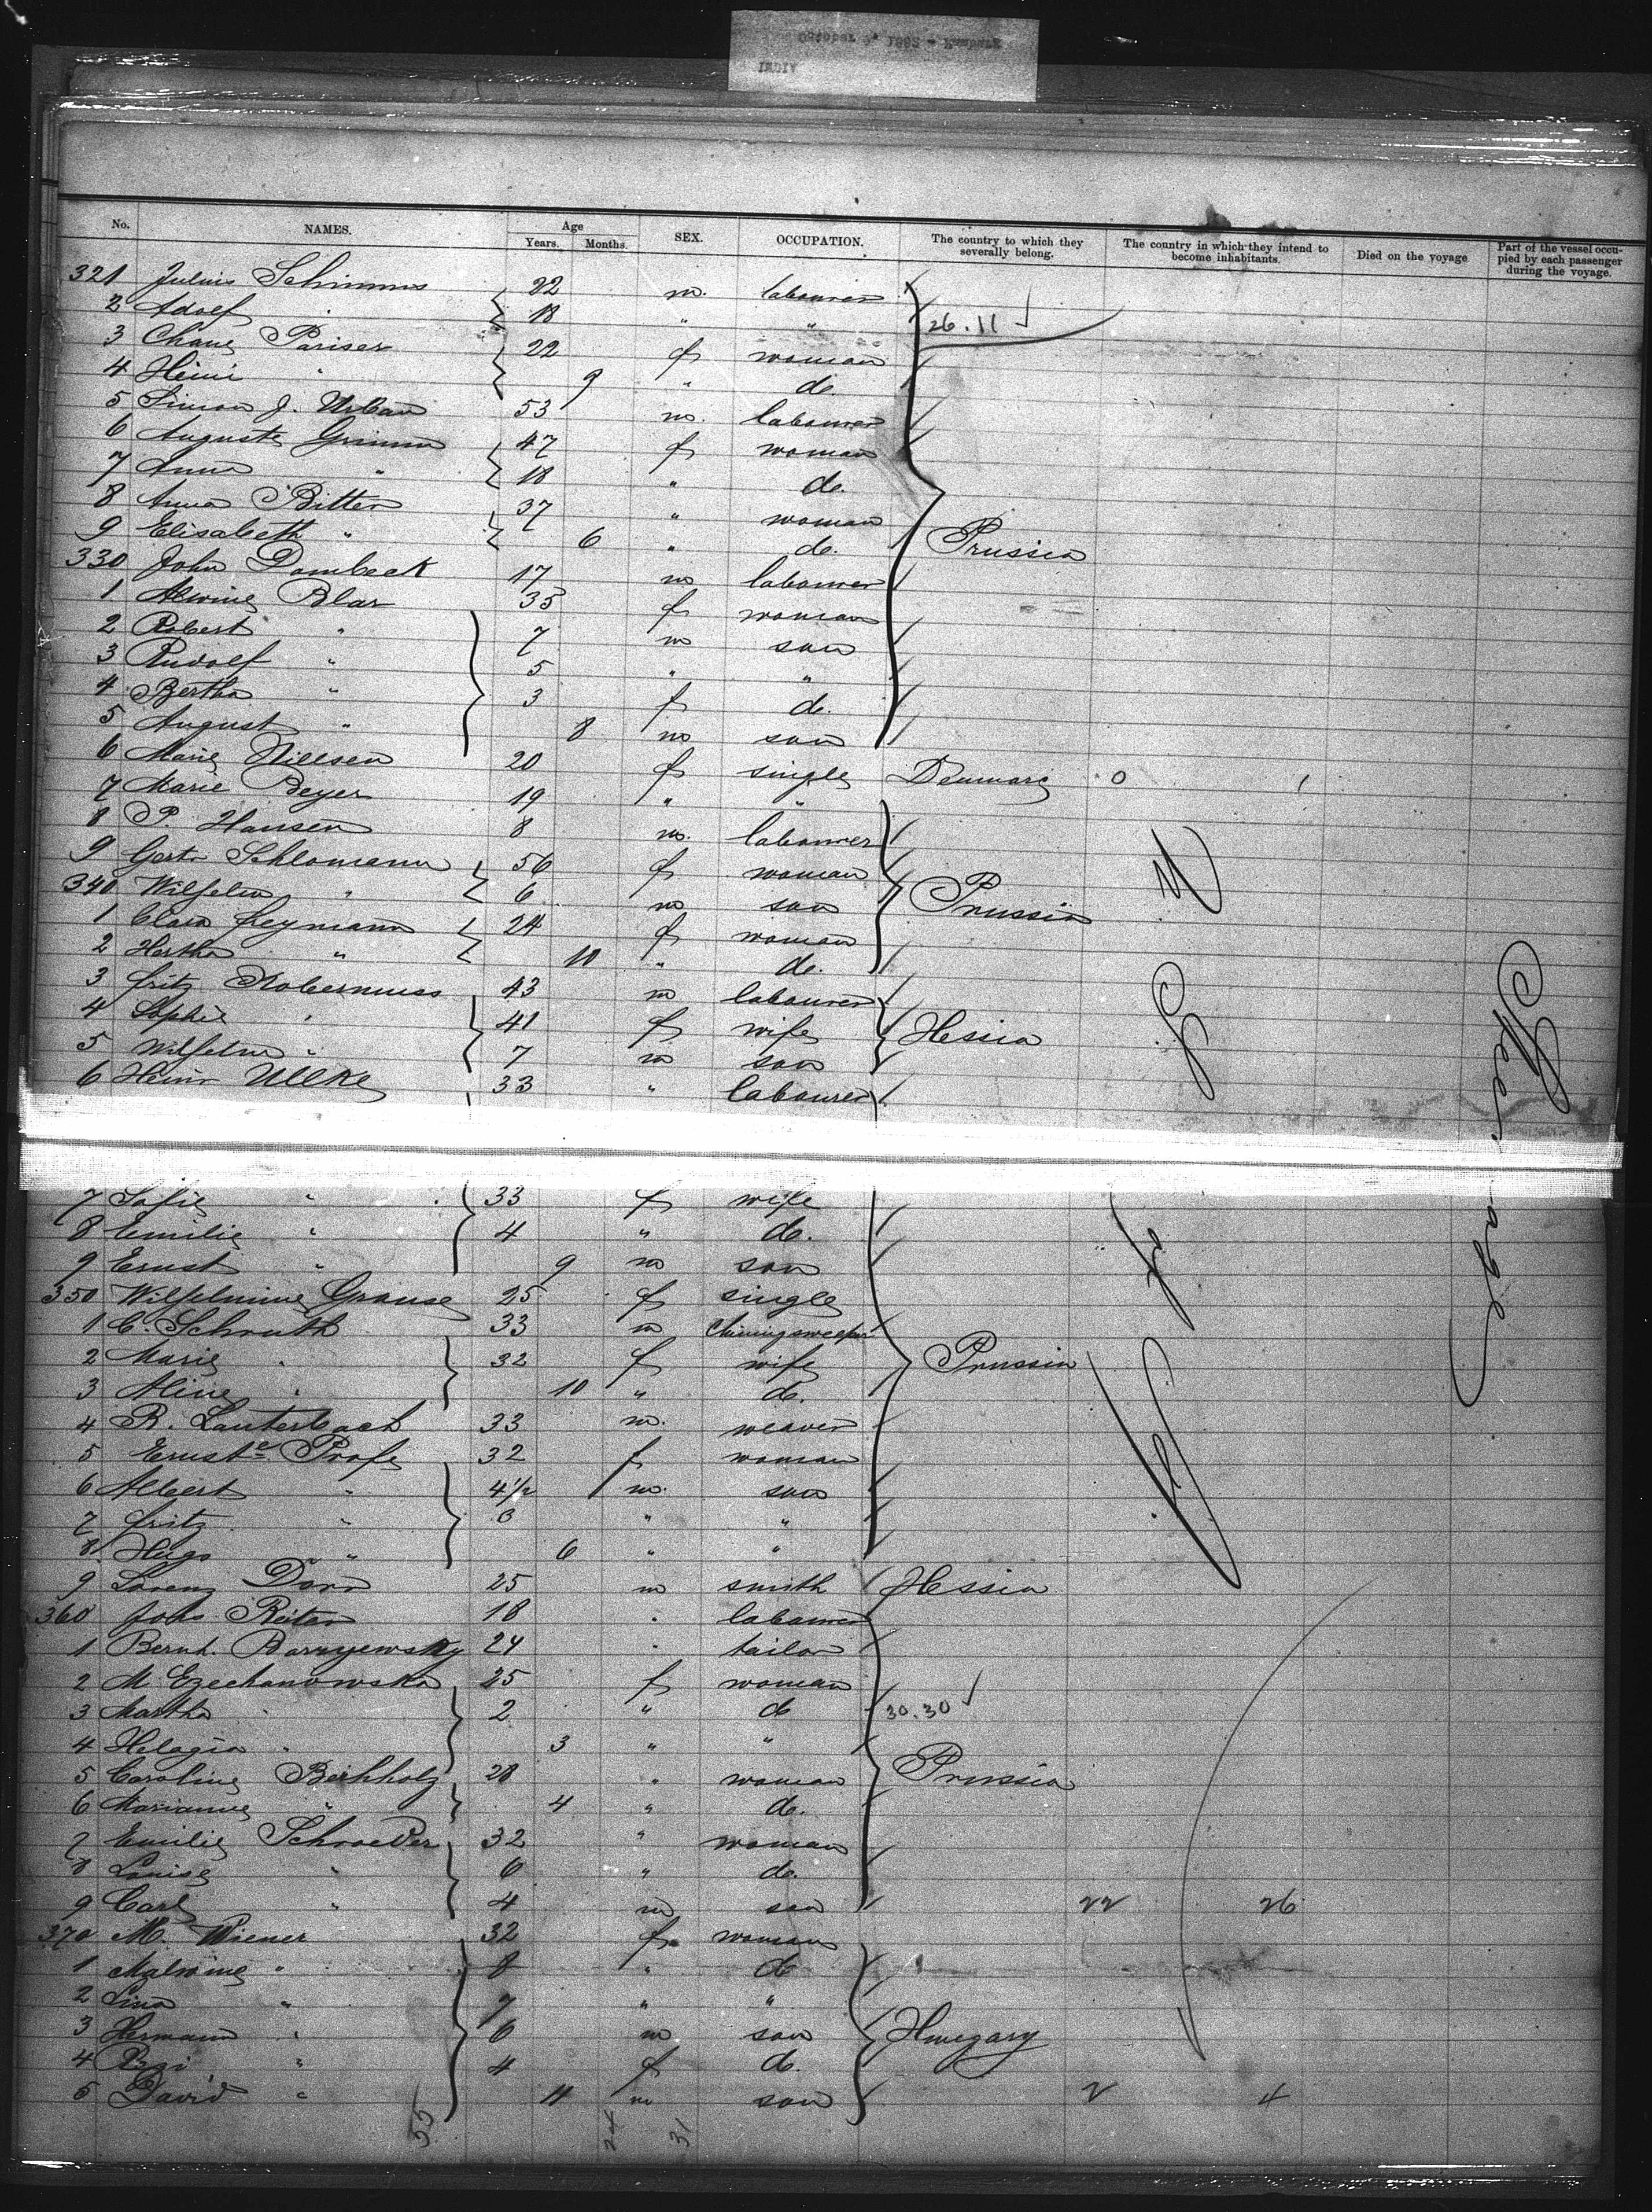 October 4, 1892 - Hamburg
INDIA
No. NAMES. Age Years. Months. SEX. OCCUPATION. The country to which they severally belong. The country in which they intend to become inhabitants. Died on the voyage Part of the vessel occupied by each passenger during the voyage.
321 Julius 22 m. labourer
2 Adolf " 18 " " 26.11
3 Pariser 22 f woman
4 " 9 " do.
5 Simon J. Urban 53 m. labourer
6 Auguste Grimm 47 f woman
7 Anna " 18 " do.
8 Anna Bitter 37 " woman
9 Elisabeth " 6 " do. Prussia
330 John Dombeck 17 m labourer
1 Alwine Blar 35 f woman
2 Robert " 7 m son
3 Rudolf " 5 " "
4 Bertha " 3 f do.
5 August " 8 m son
6 Marie Nielsen 20 f single Denmark 0 1
7 Marie Beyer 19 " "
8 P. Hansen 8 m. labourer
9 Gertr Schlomann 56 f woman
340 Wilhelm " 6 m son Prussia
1 Clara Heymann 24 f woman
2 Hertha " 10 " do.
3 Fritz Kobernuss 43 m labourer
4 Sophie " 41 f wife Hessia
5 Wilhelm " 7 m son
6 Heinr Ullke 33 " labourer
7 Sofie " 33 f wife
8 Emilie " 4 " do.
9 Ernst " 9 m son
350 Wilhelmine Grause 25 f single
1 C. Schruth 33 m Chimnysweeper
2 Marie " 32 f wife Prussia
3 Aline " 10 " do.
4 R. Lauterbach 33 m. weaver
5 Ernste Profe 32 f woman
6 Albert " 4 1/2 m. son
7 Fritz " 3 " "
8 Hugo " 6 " "
9 Lorenz Dorn 25 m smith Hessia
360 Johs Reiter 18 " labourer
1 Bernh. 24 " tailor
2 M Ezechanowska 25 f woman
3 Martha " 2 " do 30.30
4 Helagia " 3 " "
5 Caroline Berkholz 28 " woman Prussia
6 Marianne " 4 " do.
7 Emilie Schroeder 32 " woman
8 Louise " 6 " do.
9 Carl " 4 m son 22 26
370 M. Wiener 32 f woman
1 Malwine " 8 " do
2 Lina " 7 " "
3 Hermann " 6 m son Hungary
4 " 4 f do.
5 David " 11 m son 2 4
55 24 31
Steerage